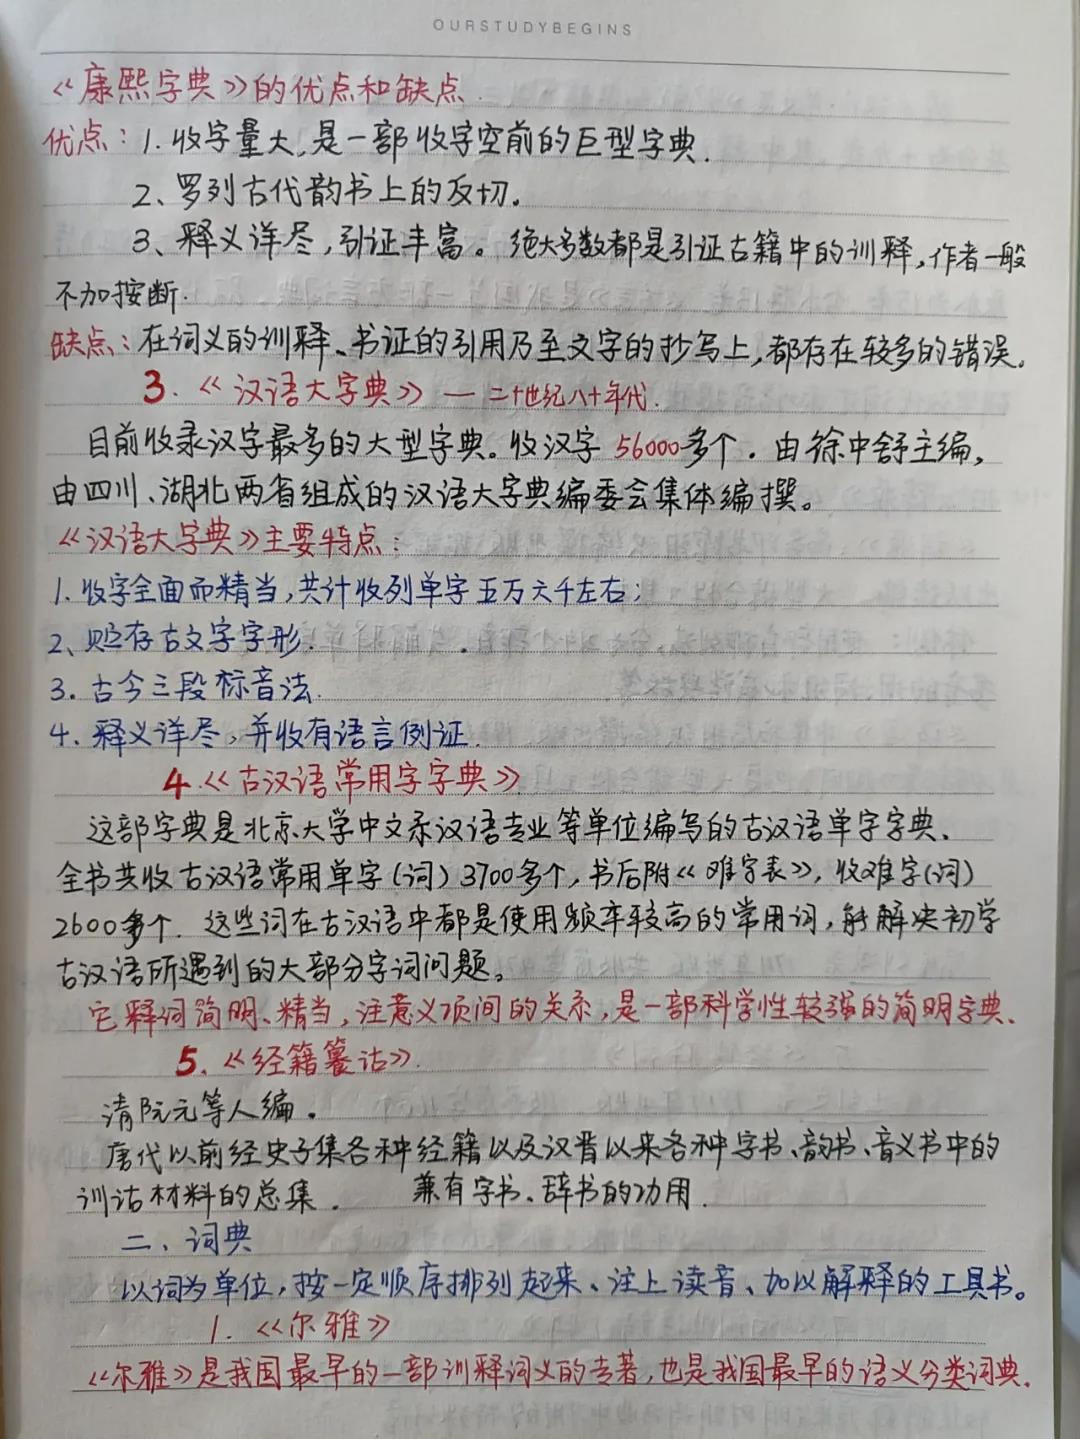 OURSTUDYBEGINS
《康熙字典》的优点和缺点.
优点：1.收字量大,是一部收字空前的巨型字典.
2、罗列古代韵书上的反切.
3、释义详尽,引证丰富。绝大多数都是引证古籍中的训释,作者一般
不加按断.
缺点：在词义的训释、书证的引用乃至文字的抄写上,都存在较多的错误。
3.《汉语大字典》—二十世纪八十年代.
目前收录汉字最多的大型字典。收汉字56000多个.由徐中舒主编,
由四川、湖北两省组成的汉语大字典编委会集体编撰。
《汉语大字典》主要特点：
1.收字全面而精当,共计收列单字五万六千左右;
2、贮存古文字字形.
3.古今三段标音法.
4.释义详尽,并收有语言例证.
4.《古汉语常用字字典》
这部字典是北京大学中文系汉语专业等单位编写的古汉语单字字典、
全书共收古汉语常用单字(词)3700多个,书后附《难字表》,收难字(词)
2600多个.这些词在古汉语中都是使用频率较高的常用词,能解决初学
古汉语所遇到的大部分字词问题。
它释词简明、精当,注意义项间的关系,是一部科学性较强的简明字典、
5.《经籍籑诂》.
清阮元等人编.
唐代以前经史子集各种经籍以及汉晋以来各种字书、韵书、音义书中的
训诂材料的总集. 兼有字书、辞书的功用.
二、词典
以词为单位,按一定顺序排列起来、注上读音、加以解释的工具书。
1.《尔雅》
《尔雅》是我国最早的一部训释词义的专著,也是我国最早的语义分类词典.